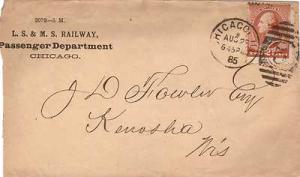 2072-5 M.
L. S. & M. S. RAILWAY,
Passenger Department
CHICAGO.
CHICAGO
AUG 23
6 45 P
85
J D Fowler Esq
Kenosha
Wis